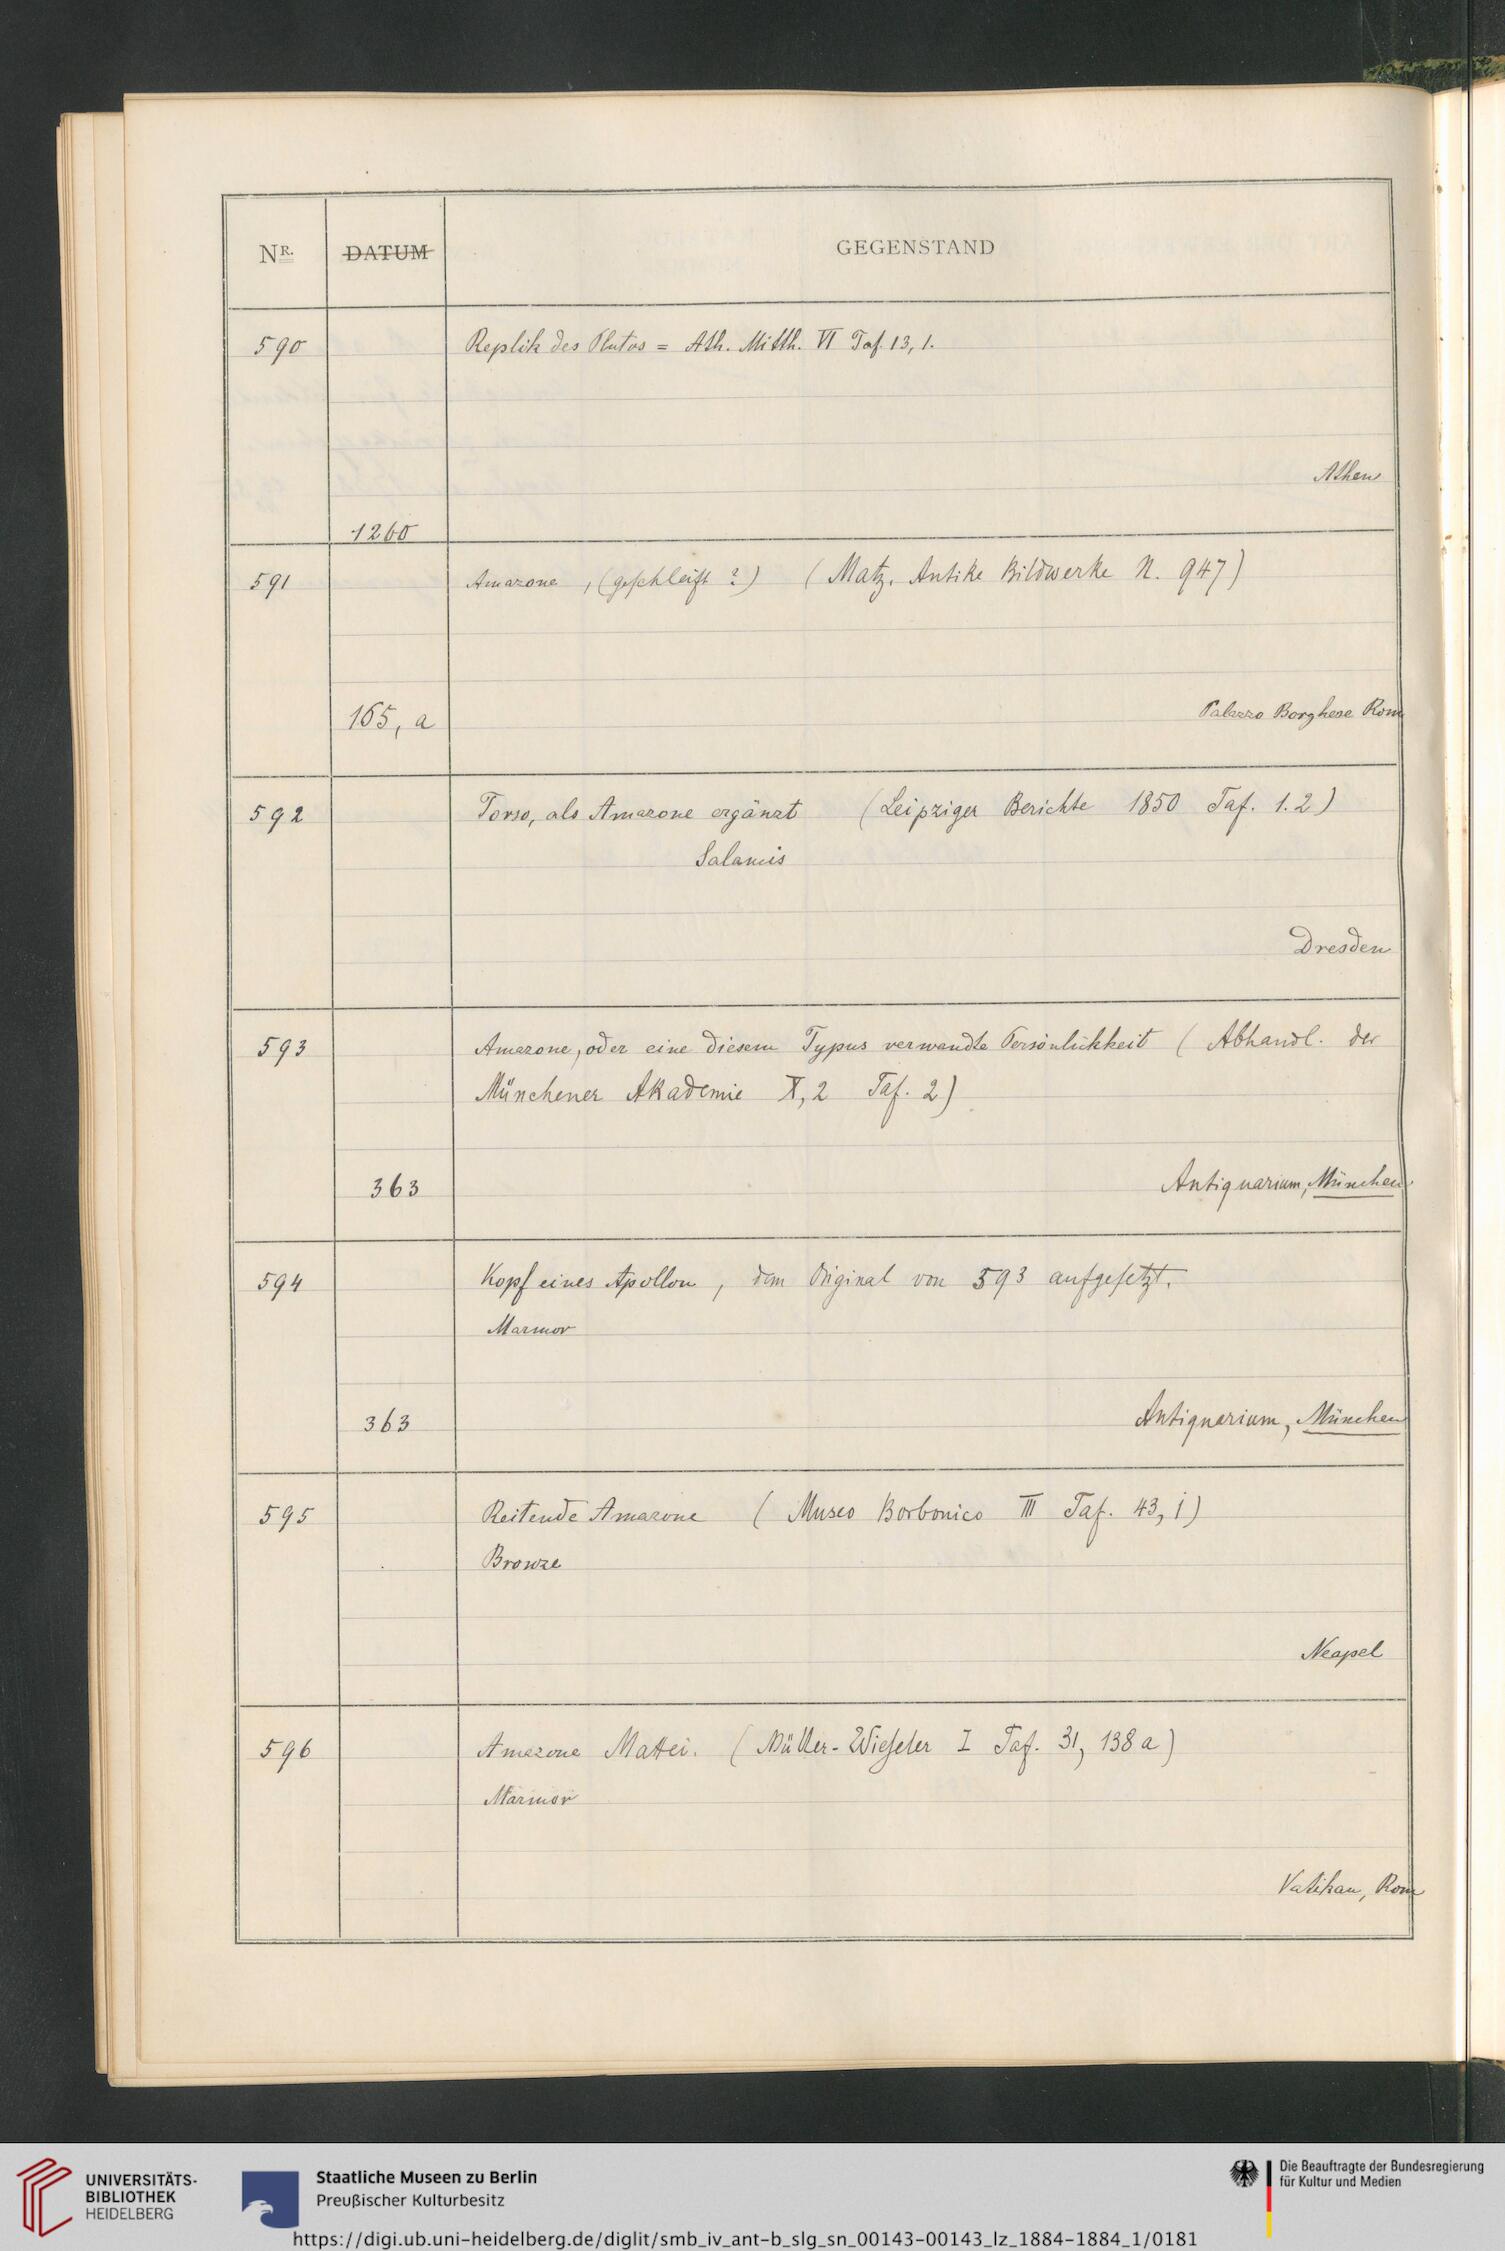 NR. DATUM GEGENSTAND
590 Replik des Plutos = Ath. Mitth. VI Taf. 13, 1.
Athen
1260
591 Amazone, (geschleift ?) (Matz, Antike Bildwerke N. 947)
165, a Palazzo Borghese Rom
592 Torso, als Amazone ergänzt (Leipziger Berichte 1850 Taf. 1.2)
Salamis
Dresden
593 Amazone, oder eine diesem Typus verwandte Persönlichkeit (Abhandl. der
Münchener Akademie X, 2 Taf. 2)
363 Antiquarium, München
594 Kopf eines Apollon, dem Original von 593 aufgesetzt.
Marmor
363 Antiquarium, München
595 Reitende Amazone (Museo Borbonico III Taf. 43, 1)
Bronze
Neapel
596 Amazone Mattei. (Müller-Wieseler I Taf. 31, 138 a)
Marmor
Vatikan, Rom
UNIVERSITÄTS-
BIBLIOTHEK
HEIDELBERG
Staatliche Museen zu Berlin
Preußischer Kulturbesitz
Die Beauftragte der Bundesregierung
für Kultur und Medien
https://digi.ub.uni-heidelberg.de/diglit/smb_iv_ant-b_slg_sn_00143-00143_lz_1884-1884_1/0181